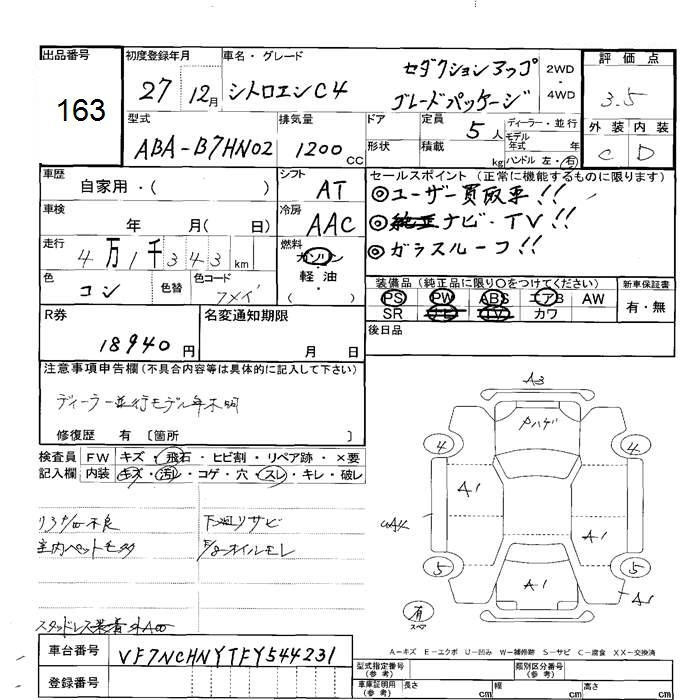 出品番号
163
初度登録年月
27 12月
車名・グレード
シトロエンC4
セダクションアップ
グレードパッケージ
2WD
4WD
評価点
3.5
外装 内装
C D
型式
ABA-B7HN02
排気量
1200cc
ドア
形状
定員
5人
積載
kg
ディーラー・並行
モデル
年式 年
ハンドル 左・右
車歴
自家用・( )
シフト
AT
車検
年 月( 日)
冷房
AAC
走行
4万1千343km
燃料
ガソリン
軽・油
( )
色
コン
色替
色コード
フメイ
セールスポイント (正常に機能するものに限ります)
◎ユーザー買取車!!
◎純正ナビ・TV!!
◎ガラスルーフ!!
装備品(純正品に限り○をつけてください)
PS PW ABS エアB AW
SR ナビ TV カワ
新車保証書
有・無
後日品
R券
18940円
名変通知期限
月 日
注意事項申告欄(不具合内容等は具体的に記入して下さい)
ディーラー並行モデル年不明
修復歴 有〔箇所 〕
検査員
記入欄
FW キズ・飛石・ヒビ割・リペア跡・×要
内装 キズ・汚レ・コゲ・穴・スレ・キレ・破レ
不良
下廻リサビ
オイルモレ
スタッドレス装着
A3
4 4
A1
A1
5 5
A1
有
スペア
A=キズ E=エクボ U=凹み W=補修跡 S=サビ C=腐食 XX=交換済
車台番号
VF7NCHNYTFY544231
登録番号
型式指定番号
(参考)
類別区分番号
(参考)
車庫証明用
(参考)
長さ cm
幅 cm
高さ cm